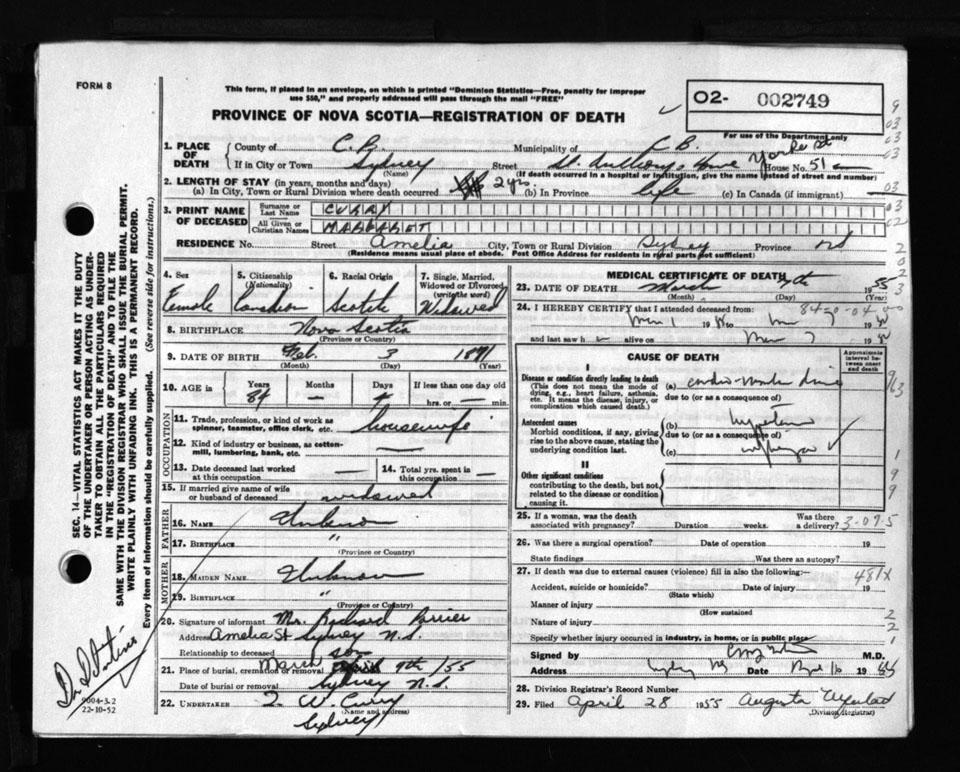 FORM 8
This form, if placed in an envelope, on which is printed "Dominion Statistics—Free, penalty for improper
use $50," and properly addressed will pass through the mail "FREE"
PROVINCE OF NOVA SCOTIA—REGISTRATION OF DEATH
O2- 002749
For use of the Department only
1. PLACE OF DEATH
County of C.B. Municipality of C.B.
If in City or Town Sydney Street St. Anthony Home Yorke St House No. 51
(Name) (If death occurred in a hospital or institution, give the name instead of street and number)
2. LENGTH OF STAY (in years, months and days)
(a) In City, Town or Rural Division where death occurred 2 yrs. (b) In Province life (c) In Canada (if immigrant) —
3. PRINT NAME OF DECEASED
Surname or Last Name CURRY
All Given or Christian Names MARGARET
RESIDENCE No. Street Amelia City, Town or Rural Division Sydney Province NS
(Residence means usual place of abode. Post Office Address for residents in rural parts not sufficient)
4. Sex Female
5. Citizenship (Nationality) Canadian
6. Racial Origin Scotch
7. Single, Married, Widowed or Divorced (write the word) Widowed
8. BIRTHPLACE Nova Scotia
(Province or Country)
9. DATE OF BIRTH Feb. 3 1871
(Month) (Day) (Year)
10. AGE in Years Months Days If less than one day old
84 — 4 hrs. or — min.
OCCUPATION
11. Trade, profession, or kind of work as spinner, teamster, office clerk, etc. housewife
12. Kind of industry or business, as cotton-mill, lumbering, bank, etc. —
13. Date deceased last worked at this occupation —
14. Total yrs. spent in this occupation —
15. If married give name of wife or husband of deceased widowed
FATHER
16. NAME Unknown
17. BIRTHPLACE "
(Province or Country)
MOTHER
18. MAIDEN NAME Unknown
19. BIRTHPLACE "
(Province or Country)
20. Signature of informant Mr. Richard
Address Amelia St Sydney N.S.
Relationship to deceased son
21. Place of burial, cremation or removal March 9th/55
Date of burial or removal Sydney N.S.
22. UNDERTAKER W. Curry
(Name and address)
Sydney
MEDICAL CERTIFICATE OF DEATH
23. DATE OF DEATH March 7th 1955
(Month) (Day) (Year)
24. I HEREBY CERTIFY that I attended deceased from:
19 to 19
and last saw h alive on 19
CAUSE OF DEATH
Approximate interval between onset and death
I
Disease or condition directly leading to death
(This does not mean the mode of dying, e.g., heart failure, asthenia, etc. It means the disease, injury, or complication which caused death.)
(a)
due to (or as a consequence of)
Antecedent causes
Morbid conditions, if any, giving rise to the above cause, stating the underlying condition last.
(b)
due to (or as a consequence of)
(c)
II
Other significant conditions
contributing to the death, but not related to the disease or condition causing it.
25. If a woman, was the death associated with pregnancy? Duration weeks. Was there a delivery?
26. Was there a surgical operation? Date of operation 19
State findings Was there an autopsy?
27. If death was due to external causes (violence) fill in also the following:—
Accident, suicide or homicide? Date of injury 19
(State which)
Manner of injury
(How sustained
Nature of injury
Specify whether injury occurred in industry, in home, or in public place
Signed by M.D.
Address Date 19
28. Division Registrar's Record Number
29. Filed April 28 1955 Augusta
(Division Registrar)
SEC. 14—VITAL STATISTICS ACT MAKES IT THE DUTY
OF THE UNDERTAKER OR PERSON ACTING AS UNDER-
TAKER TO OBTAIN ALL THE PARTICULARS REQUIRED
IN THE "REGISTRATION OF DEATH" AND TO FILE THE
SAME WITH THE DIVISION REGISTRAR WHO SHALL ISSUE THE BURIAL PERMIT.
WRITE PLAINLY WITH UNFADING INK. THIS IS A PERMANENT RECORD.
Every item of information should be carefully supplied. (See reverse side for instructions.)
9004-3.2
22-10-52